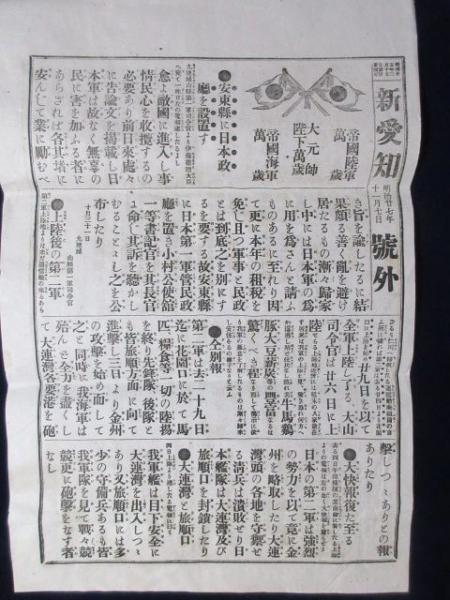 新愛知
號外
明治廿七年
十一月七日
帝國陸軍
萬歲
大元帥
陛下萬歲
帝國海軍
萬歲
●安東縣に日本政
廳を設置す
愈よ敵國に進入し事
情民心を收攬するの
必要あり前日來處々
に告諭文を揭載し日
本軍は故なく無辜の
民に害を加ふる者に
あらされば各其堵に
安んじて業に勵むべ
き旨を諭したるに結
果頗る善く亂を避け
居たるもの漸々歸家
し中には日本軍の爲
に用を爲さんと請ふ
ものあるに至れり因
て更に本年の租稅を
免し且つ軍事と民政
とは到底之を別にす
るを要する故安東縣
に日本第一軍管民政
廳を置き小村公使舘
一等書記官を其長官
に命じ其訴を聽かし
むることとし之を公
布したり
十月三十一日
●上陸後の第二軍
廿九日を以て
全軍上陸し了る大山
司令官は廿六日に上
陸
牛馬鷄
豚大豆薪炭等の豐富なるは
驚くべき程
●仝別報
第二軍は去二十九日
迄に花園口に於て馬
匹、糧食等一切の陸揚
を終り先發隊、後隊と
も皆旅順方面に向て
進擊し三日より金州
の攻擊を始め而して
之と同時に我海軍は
殆んど全力を盡くし
て大連灣各要港を砲
擊しつゝありとの報
ありたり
●大快報復た至る
日本の第二軍は强烈
の勢力を以て竟に金
州を略取したり大連
灣頭の各地を守禦せ
る淸兵は潰敗せり日
本艦隊は大連灣及び
旅順口を封鎖したり
●大連灣と旅順口
我軍艦は目下安全に
大連灣を出入しつゝ
あり又旅順口には多
少の守備兵あるも皆
我軍隊を見て戰々兢
兢更に砲擊をなす者
なし